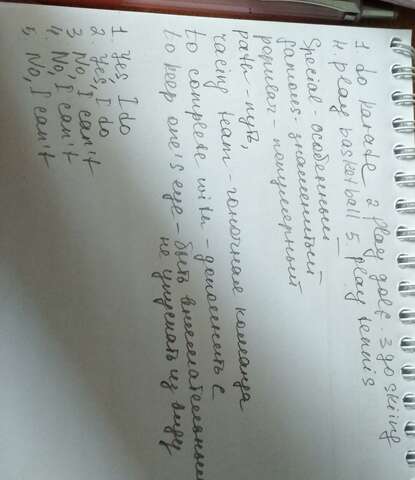 1 do karate 2 play golf 3 go skiing
4. play basketball 5 play tennis
Special - особенный
famous - знаменитый
popular - популярный
path - путь,
racing team - гоночная команда
to complete with - дополнять с
to keep one's eye - быть внимательным
не упускать из виду
1. Yes, I do
2. Yes, I do
3 No, I can't
4. No, I can't
5. No, I can't